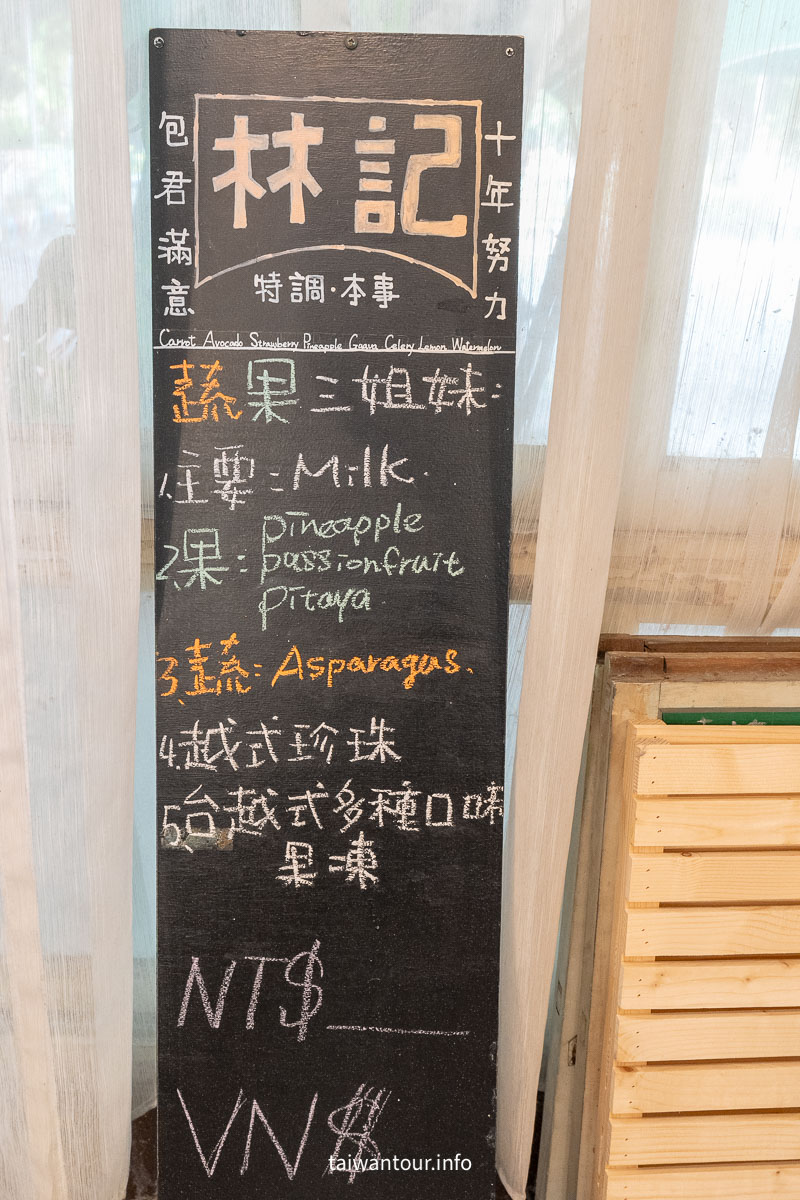 林記
十年努力
包君滿意
特調·本事
Carrot Avocado Strawberry Pineapple Guava Celery Lemon Watermelon
蔬果三姐妹:
1.主要:Milk.
2、果:pineapple
passionfruit
pitaya.
3、蔬:Asparagus、
4.越式珍珠
5、台越式多種口味
果凍
NT$____
VN$
taiwantour.info